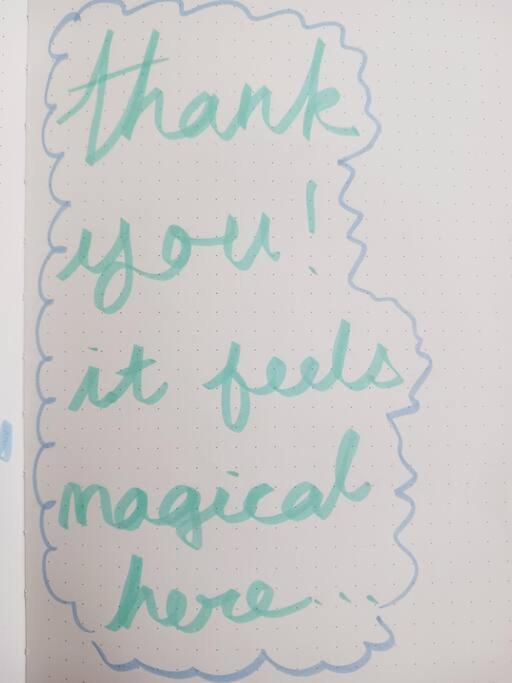 thank
you!
it feels
magical
here...